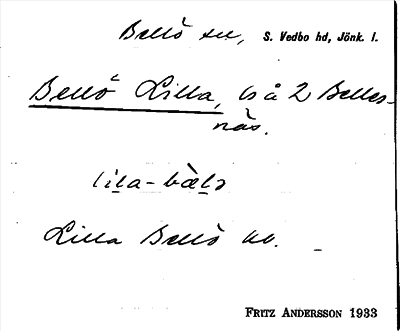 Bellö sn, S. Vedbo hd, Jönk. l.
Bellö Lilla, bs å 2 Bellö-
näs.
lila-bælə
Lilla Bellö
FRITZ ANDERSSON 1933